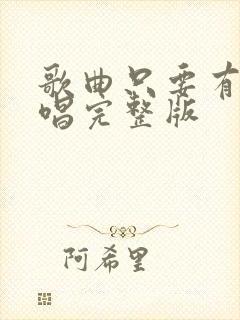 歌曲只要有
唱完整版
阿希里